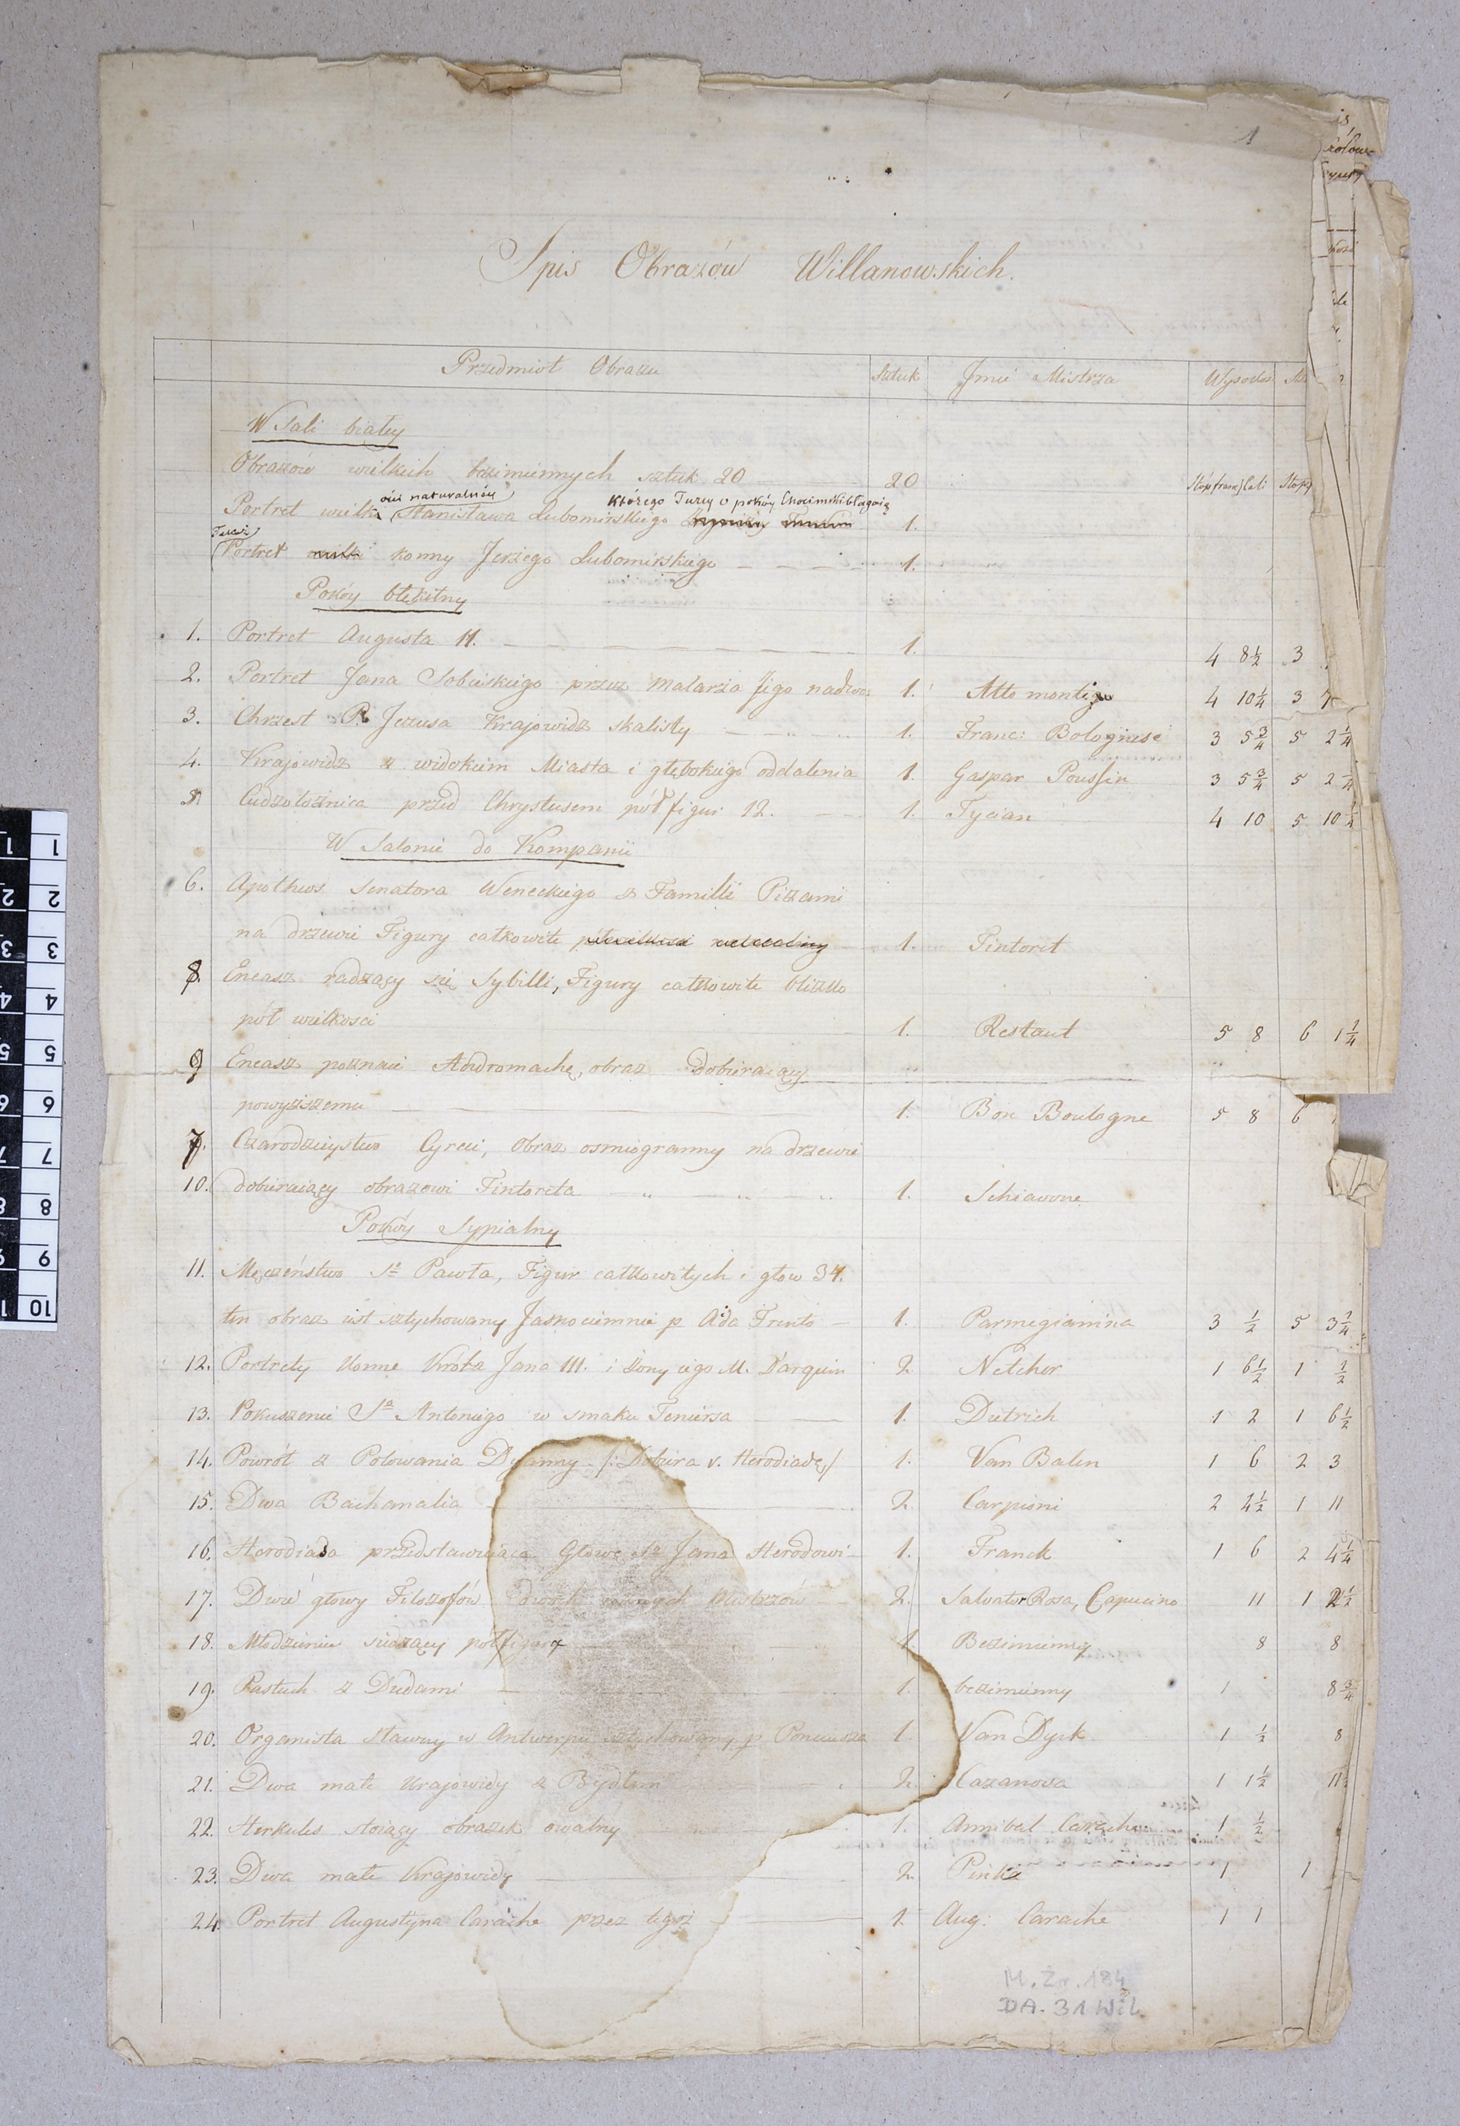 1
Spis Obrazów Willanowskich.
Przedmiot Obrazu Sztuk Jmie Mistrza
W Sali białey
Obrazów wielkich bezimiennych sztuk 20 20
ści naturalnéy którego Turcy o pokóy Chocimski błagaią
Portret wielk Stanisława Lubomirskiego 1.
Portret konny Jerzego Lubomirskiego 1.
Pokóy błękitny
1. Portret Augusta II. 1. 4 8½ 3
2. Portret Jana Sobieskiego przez Malarza Jego nadwor 1. Altomontego 4 10¼ 3 7
3. Chrzest P. Jezusa Krajowidz skalisty 1. Franc: Bolognese 3 5¾ 5 2¼
4. Krajowidz z widokiem Miasta i głębokiego oddalenia 1. Gaspar Poussin 3 5¾ 5 2
5 Cudzołożnica przed Chrystusem pół figur 12. 1. Tycian 4 10 5 10
W Salonie do Kompanii
6. Apotheos Senatora Weneckiego z Familii Pizami
na drzewie Figury całkowite 1. Tintoret
8. Eneasz radzący się Sybilli, Figury całkowite blizko
pół wielkosci 1. Restaut 5 8 6 1¼
9 Eneasz poznaie Andromachę, obraz dobieraiący
powyższemu 1. Bon Boulogne 5 8 6
7. Czarodzieystwo Cyrcei, obraz osmiogranny na drzewie
10. dobieraiący obrazowi Tintoreta 1. Schiavone
Pokóy Sypialny
11. Męczeństwo Sº Pawła, Figur całkowitych i głow 34.
ten obraz iest sztychowany Jasnociemnie p Ada Trento 1. Parmegianina 3 ½ 5 3¼
12. Portrety konne Króla Jana III. i żony iego M. D'arquien 2 Netcher 1 6½ 1 ½
13. Pokuszenie Sº Antoniego w smaku Teniersa 1. Dietrich 1 2 1 6½
14. Powrót z Polowania Dyanny /: Dobiera v. Herodiadę/ 1. Van Balen 1 6 2 3
15. Dwa Bachanalia 2 Carpioni 2 4½ 1 11
16. Herodiada przedstawiaiąca Głowę Sº Jana Herodowi 1. Franck 1 6 2 4¼
17. Dwie głowy Filozofów dwóch Mistrzów 2. Salvator Rosa, Capucino 11 1 2½
18. Młodzieniec siedzący pół figura 1. Bezimienny 8 8
19. Pastuch z Dudami 1. bezimienny 1 8¾
20. Organista sławny w Antwerpii sztychowany p Ponciusza 1. Van Dyck 1 ½ 8
21. Dwa małe Krajowidy z Bydłem 2. Cazanova 1 1½ 11
22. Herkules stoiący obrazek owalny 1. Annibal Carache 1 ½
23. Dwa małe Krajowidy 2 1 1
24. Portret Augustyna Carache przez tegoż 1. Aug: Carache 1 1
M. Źr. 184
DA. 31 Wil.
1 2 3 4 5 6 7 8 9 10